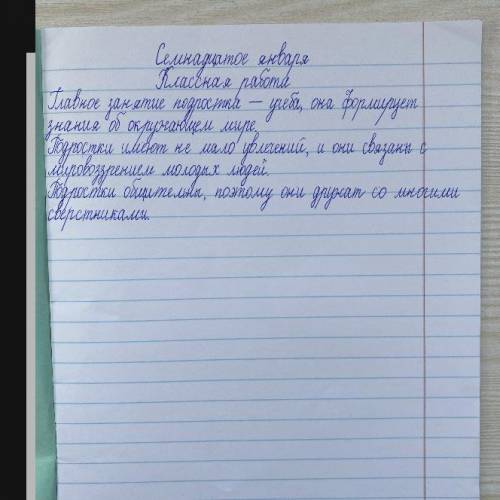 Семнадцатое января
Классная работа
Главное занятие подростка — учеба, она формирует
знания об окружающем мире.
Подростки имеют не мало увлечений, и они связаны с
мировоззрением молодых людей.
Подростки общительны, поэтому они дружат со многими
сверстниками.